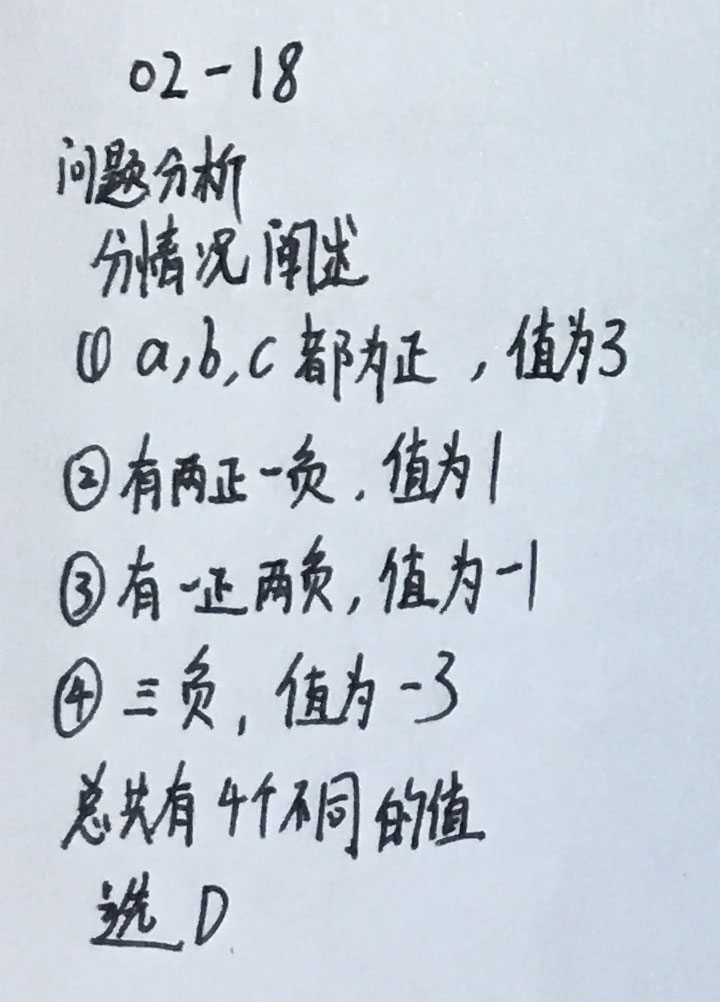 02-18
问题分析
分情况阐述
① a,b,c都为正，值为3
② 有两正一负，值为1
③ 有一正两负，值为-1
④ 三负，值为-3
总共有4个不同的值
选D